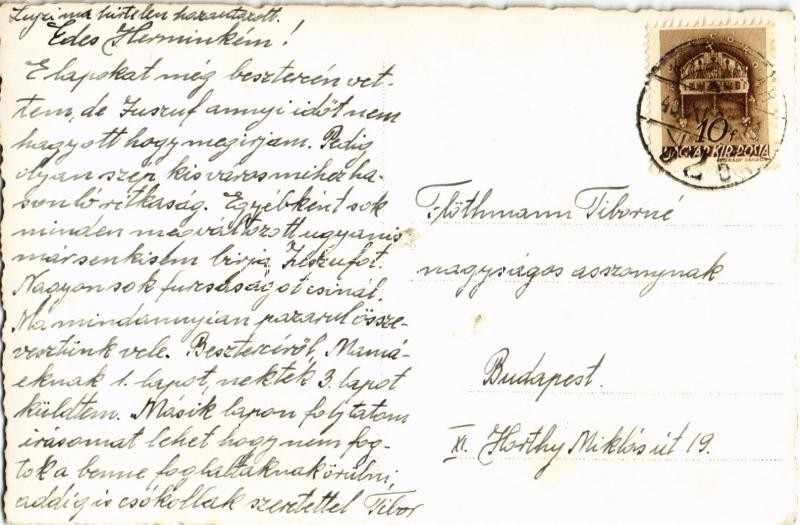 Lujzi ma hirtelen hazautazott.
Édes Herminkém!
E lapokat még besztercén vet-
tem, de Juszuf annyi időt nem
hagyott hogy megirjam. Pedig
olyan szép kisváros mihez ha-
sonló ritkaság. Egyébként sok
minden megváltozott ugyanis
már senkisem birja Juszufot.
Nagyon sok furcsaságot csinál.
Ma mindannyian pazarul össze-
vesztünk vele. Besztercéről, Mamá-
éknak 1. lapot, nektek 3. lapot
küldtem. Másik lapon folytatom
irásomat lehet hogy nem fog-
tok a benne foglaltaknak örülni,
addig is csókollak szeretettel Tibor
Flóthmann Tiborné
nagyságos asszonynak
Budapest.
XI. Horthy Miklós út 19.
10 f
MAGYAR KIR. POSTA